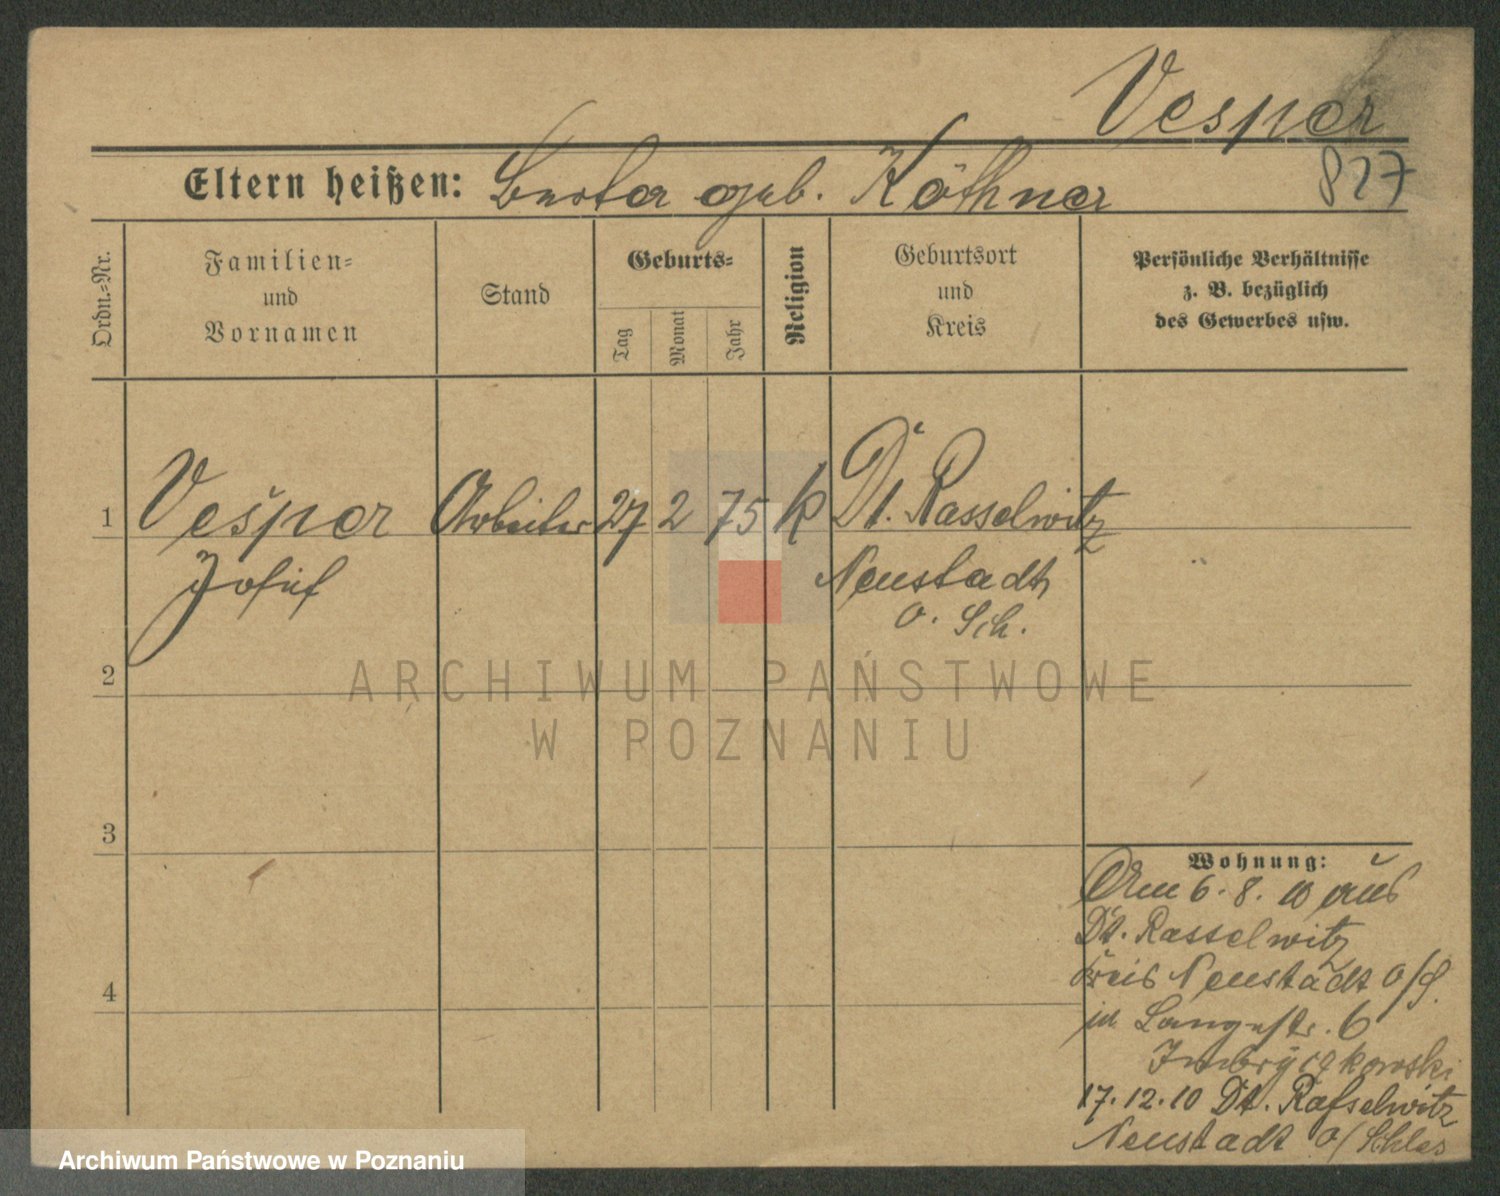 Vesper
827
Eltern heißen: geb. Köthner
Ordn.-Nr.
Familien-
und
Vornamen
Stand
Geburts-
Tag
Monat
Jahr
Religion
Geburtsort
und
Kreis
Persönliche Verhältnisse
z. B. bezüglich
des Gewerbes usw.
1 Vesper Arbeiter 27 2 75 k Dt. Rasselwitz
Josef Neustadt
O. Sch.
2
3
4
Wohnung:
Am 6. 8. 10 aus
Dt. Rasselwitz
Kreis Neustadt O/S.
in Langestr. 6
17.12.10 Dt. Raßelwitz
Neustadt O/Schles
ARCHIWUM PAŃSTWOWE
W POZNANIU
Archiwum Państwowe w Poznaniu